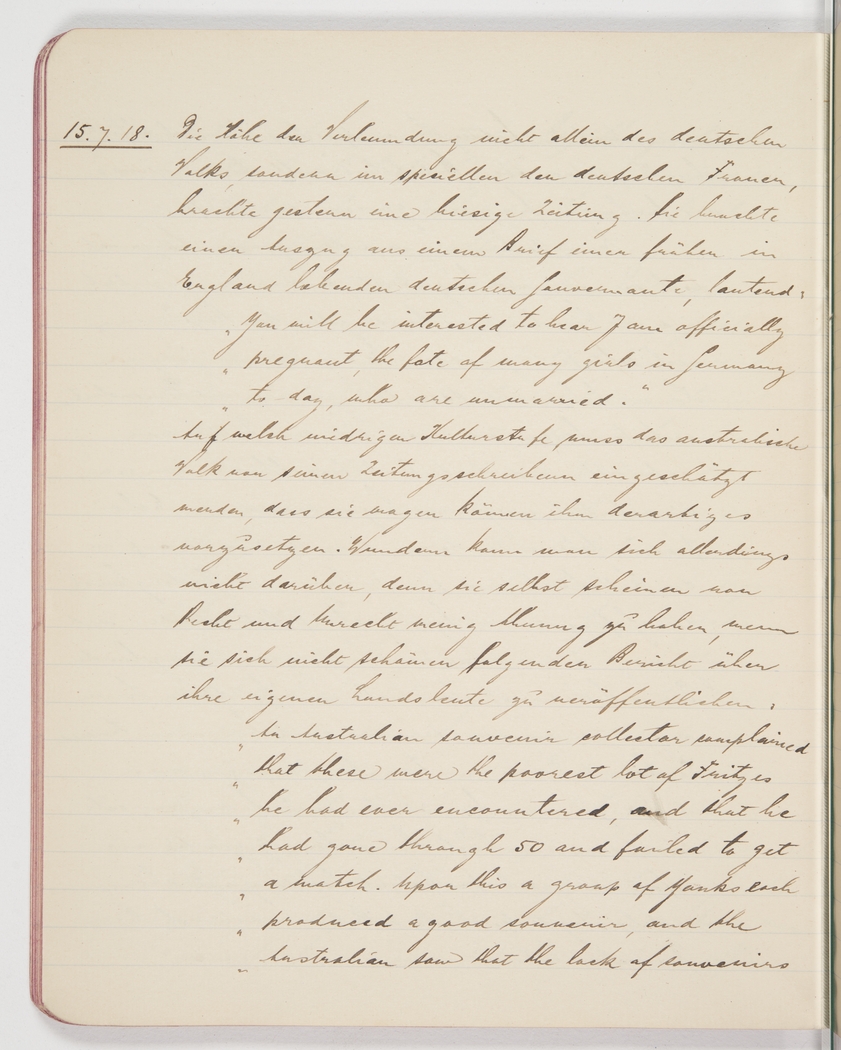 15.7.18. Die Höhe der Verleumdung nicht allein des deutschen
Volks, sondern im speciellen der deutschen Frauen,
brachte gestern eine hiesige Zeitung. Sie brachte
einen Auszug aus einem Brief einer früher in
England lebenden deutschen Gouvernante, lautend:
"You will be interested to hear I am officially
" pregnant, the fate of many girls in Germany
" to day, who are unmarried."
Auf welch niedriger Kulturstufe muss das australische
Volk von seinen Zeitungsschreibern eingeschätzt
werden, dass sie wagen können ihm derartiges
vorzusetzen. Wundern kann man sich allerdings
nicht darüber, denn sie selbst scheinen von
Recht und Unrecht wenig Ahnung zu haben, wenn
sie sich nicht schämen folgenden Bericht über
ihre eigenen Landsleute zu veröffentlichen:
" An Australian souvenir collector complained
" that these were the poorest lot of Fritzes
" he had ever encountered, and that he
" had gone through 50 and failed to get
" a watch. Upon this a group of Yanks each
" produced a good souvenir, and the
" Australian saw that the lack of souvenirs